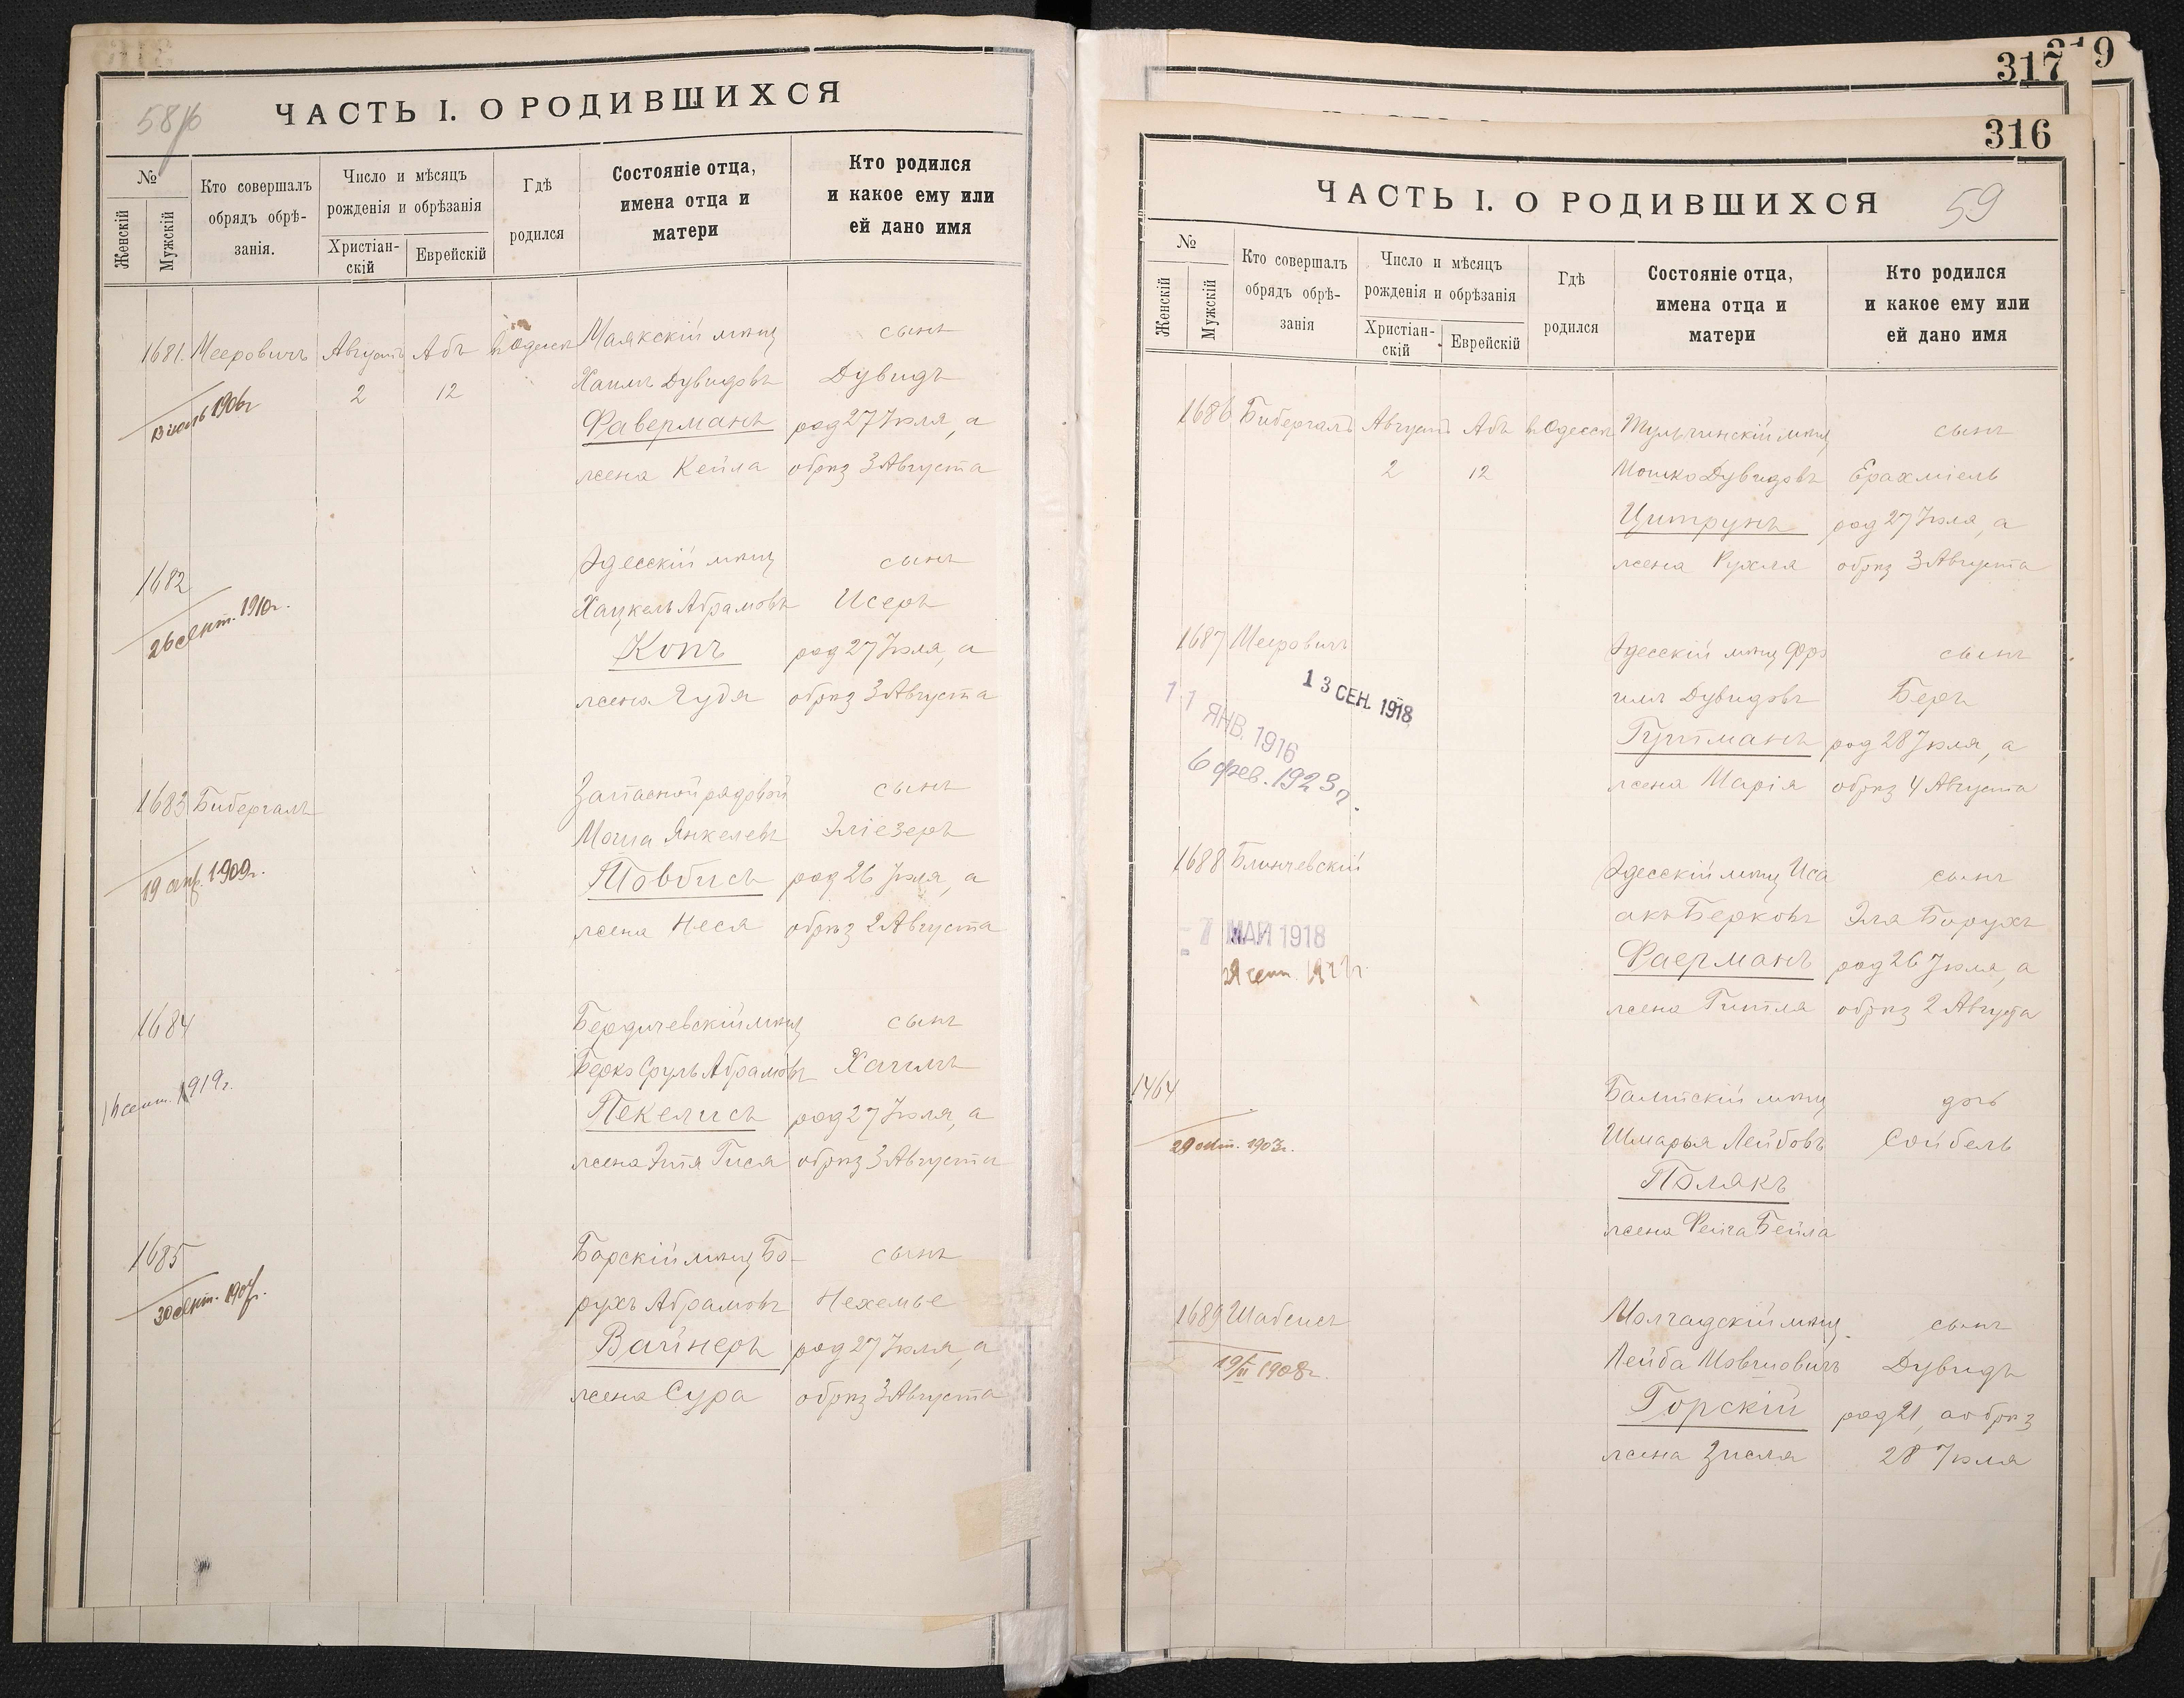 58/16
ЧАСТЬ I. О РОДИВШИХСЯ
№
Женскій
Мужскій
Кто совершалъ
обрядъ обрѣ-
занія.
Число и мѣсяцъ
рожденія и обрѣзанія
Христіан-
скій
Еврейскій
Гдѣ
родился
Состояніе отца,
имена отца и
матери
Кто родился
и какое ему или
ей дано имя
1681. Мееровичъ Августъ Абъ въ Одессѣ Маякскій мѣщ сынъ
2 12 Хаимъ Дувидовъ Дувидъ
13 июль 1906г
Фаверманъ род 27 Іюля, а
жена Кейла обрѣз 3 Августа
1682 Одесскій мѣщ сынъ
26 сент. 1910г.
Хацкель Абрамовъ Исеръ
Копъ род 27 Іюля, а
жена Гудя обрѣз 3 Августа
1683 Бибергалъ Запасной рядовой сынъ
Моша Янкелевъ Эліезеръ
19 апр. 1909г.
Товбисъ род 26 Іюля, а
жена Неся обрѣз 2 Августа
1684 Бердичевскій мѣщ сынъ
Берко Сруль Абрамовъ Хаимъ
16 сент. 1919г.
Пекелисъ род 27 Іюля, а
жена Этя Гися обрѣз 3 Августа
1685 Барскій мѣщ Бо- сынъ
30 сент. 1907г.
рухъ Абрамовъ Нехемье
Вайнеръ род 27 Іюля, а
жена Сура обрѣз 3 Августа
319
317
316
ЧАСТЬ I. О РОДИВШИХСЯ
59
№
Женскій
Мужскій
Кто совершалъ
обрядъ обрѣ-
занія
Число и мѣсяцъ
рожденія и обрѣзанія
Христіан-
скій
Еврейскій
Гдѣ
родился
Состояніе отца,
имена отца и
матери
Кто родился
и какое ему или
ей дано имя
1686 Бибергалъ Августъ Абъ въ Одессѣ Тульчинскій мѣщ сынъ
2 12 Мошко Дувидовъ Ерахміель
Цитрунъ род 27 Іюля, а
жена Рухля обрѣз 3 Августа
1687 Мееровичъ Одесскій мѣщ Фро сынъ
13 СЕН. 1918
11 ЯНВ. 1916
6 фев. 1923г.
имъ Дувидовъ Беръ
Гутманъ род 28 Іюля, а
жена Марія обрѣз 4 Августа
1688 Блинчевскій Одесскій мѣщ Иса сынъ
акъ Берковъ Эля Борухъ
7 МАЙ 1918
Фаерманъ род 26 Іюля, а
жена Гитля обрѣз 2 Августа
1464 Балтскій мѣщ дочь
29 окт. 1903г.
Шмарья Лейбовъ Сойбель
Полякъ
жена Фейга Бейла
1689 Шабсисъ Молчадскій мѣщ. сынъ
1908г.
Лейба Мовшовичъ Дувидъ
Горскій род 21, а обрѣз
жена Зисля 28 Іюля